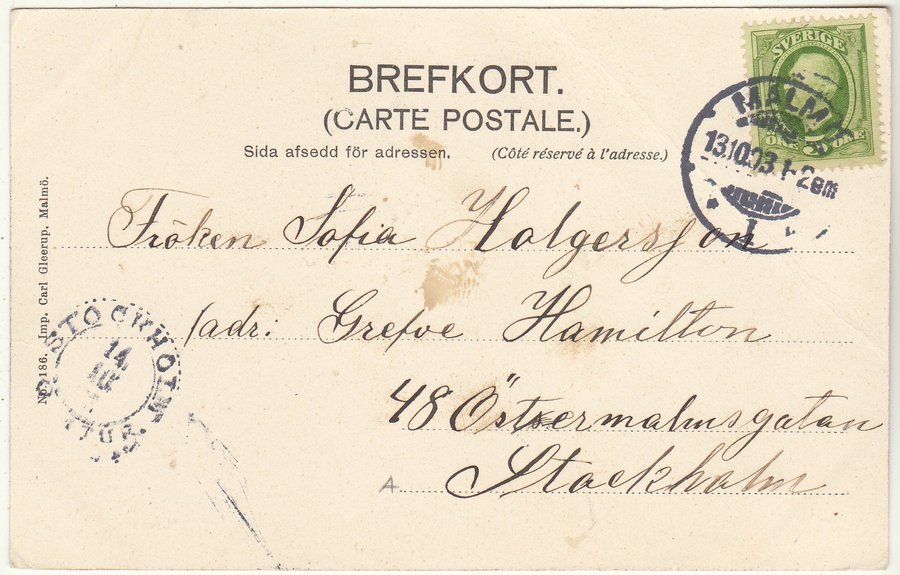 BREFKORT.
(CARTE POSTALE.)
Sida afsedd för adressen. (Côté réservé à l'adresse.)
SVERIGE
5
ÖRE ÖRE
MALMÖ
13.10.03.1-2em
1
Fröken Sofia Holgersson
/adr: Grefve Hamilton
48 Östermalmsgatan
Stockholm
A
No. 186. Imp. Carl Gleerup, Malmö.
STOCKHOLM
14